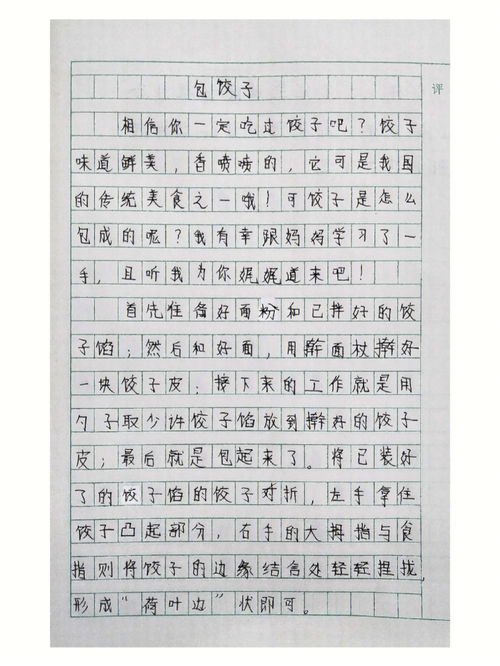 包饺子
评
相信你一定吃过饺子吧？饺子
味道鲜美，香喷喷的，它可是我国
的传统美食之一哦！可饺子是怎么
包成的呢？我有幸跟妈妈学习了一
手，且听我为你娓娓道来吧！
首先准备好面粉和已拌好的饺
子馅；然后和好面，用擀面杖擀好
一块饺子皮；接下来的工作就是用
勺子取少许饺子馅放到擀好的饺子
皮；最后就是包起来了。将已装好
了的饺子馅的饺子对折，左手拿住
饺子凸起部分，右手的大拇指与食
指则将饺子的边缘结合处轻轻捏拢，
形成“荷叶边”状即可。